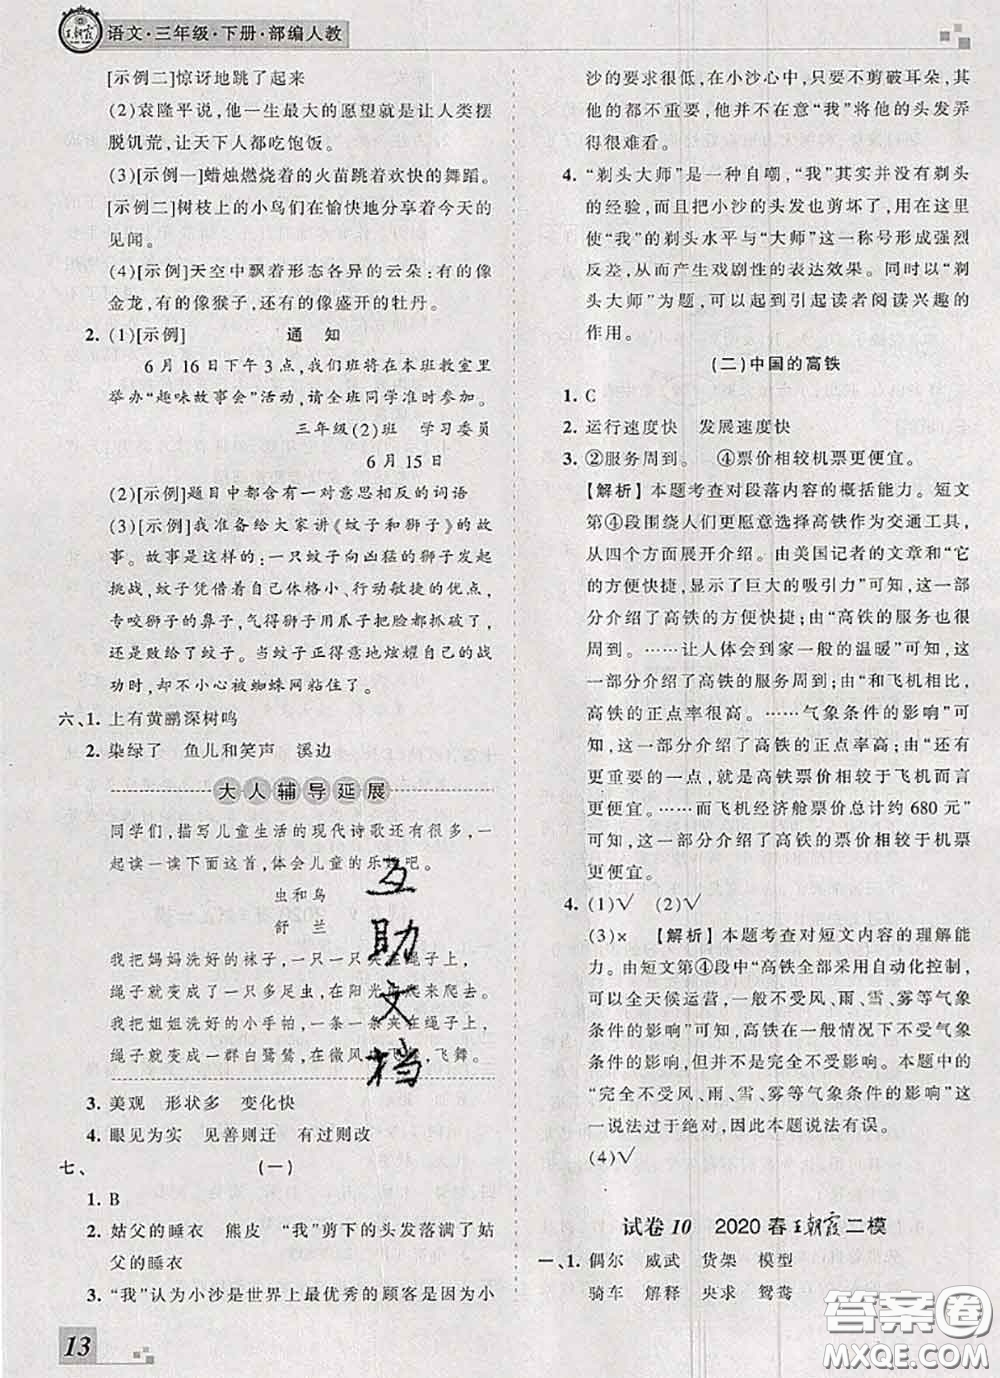 王朝霞
语文·三年级·下册·部编人教
[示例二]惊讶地跳了起来
(2)袁隆平说,他一生最大的愿望就是让人类摆
脱饥荒,让天下人都吃饱饭。
(3)[示例一]蜡烛燃烧着的火苗跳着欢快的舞蹈。
[示例二]树枝上的小鸟们在愉快地分享着今天的
见闻。
(4)[示例]天空中飘着形态各异的云朵:有的像
金龙,有的像猴子,还有的像盛开的牡丹。
2. (1)[示例] 通 知
6月16日下午3点,我们班将在本班教室里
举办“趣味故事会”活动,请全班同学准时参加。
三年级(2)班 学习委员
6月15日
(2)[示例]题目中都含有一对意思相反的词语
(3)[示例]我准备给大家讲《蚊子和狮子》的故
事。故事是这样的:一只蚊子向凶猛的狮子发起
挑战,蚊子凭借着自己体格小、行动敏捷的优点,
专咬狮子的鼻子,气得狮子用爪子把脸都抓破了,
还是败给了蚊子。当蚊子正得意地炫耀自己的战
功时,却不小心被蜘蛛网粘住了。
六、1. 上有黄鹂深树鸣
2. 染绿了 鱼儿和笑声 溪边
大人辅导延展
同学们,描写儿童生活的现代诗歌还有很多,一
起读一读下面这首,体会儿童的乐趣吧。
虫和鸟
舒 兰
我把妈妈洗好的袜子,一只一只夹在绳子上,
绳子就变成了一只多足虫,在阳光中爬来爬去。
我把姐姐洗好的小手帕,一条一条夹在绳子上,
绳子就变成了一群白鹭鸶,在微风中飞舞,飞舞。
3. 美观 形状多 变化快
4. 眼见为实 见善则迁 有过则改
七、 (一)
1. B
2. 姑父的睡衣 熊皮 “我”剪下的头发落满了姑
父的睡衣
3. “我”认为小沙是世界上最优秀的顾客是因为小
13
沙的要求很低,在小沙心中,只要不剪破耳朵,其
他的都不重要,他并不在意“我”将他的头发弄
得很难看。
4. “剃头大师”是一种自嘲,“我”其实并没有剃头
的经验,而且把小沙的头发也剪坏了,用在这里
使“我”的剃头水平与“大师”这一称号形成强烈
反差,从而产生戏剧性的表达效果。同时以“剃
头大师”为题,可以起到引起读者阅读兴趣的
作用。
(二)中国的高铁
1. C
2. 运行速度快 发展速度快
3. ②服务周到。 ④票价相较机票更便宜。
【解析】本题考查对段落内容的概括能力。短文
第④段围绕人们更愿意选择高铁作为交通工具,
从四个方面展开介绍。由美国记者的文章和“它
的方便快捷,显示了巨大的吸引力”可知,这一部
分介绍了高铁的方便快捷;由“高铁的服务也很
周到。……让人体会到家一般的温暖”可知,这
一部分介绍了高铁的服务周到;由“和飞机相比,
高铁的正点率很高。……气象条件的影响”可
知,这一部分介绍了高铁的正点率高;由“更为
重要的一点,就是高铁票价相较于飞机而言
更便宜。……而飞机经济舱票价总计约680元”
可知,这一部分介绍了高铁的票价相较于机票
更便宜。
4. (1)√ (2)√
(3)× 【解析】本题考查对短文内容的理解能
力。由短文第④段中“高铁全部采用自动化控制,
可以全天候运营,一般不受风、雨、雪、雾等气象
条件的影响”可知,高铁在一般情况下不受气象
条件的影响,但并不是完全不受影响。本题中的
“完全不受风、雨、雪、雾等气象条件的影响”这
一说法过于绝对,因此本题说法有误。
(4)√
试卷10 2020春王朝霞二模
一、1. 偶尔 威武 货架 模型
骑车 解释 央求 鸳鸯
互助文档
答案圈
MXQE.COM